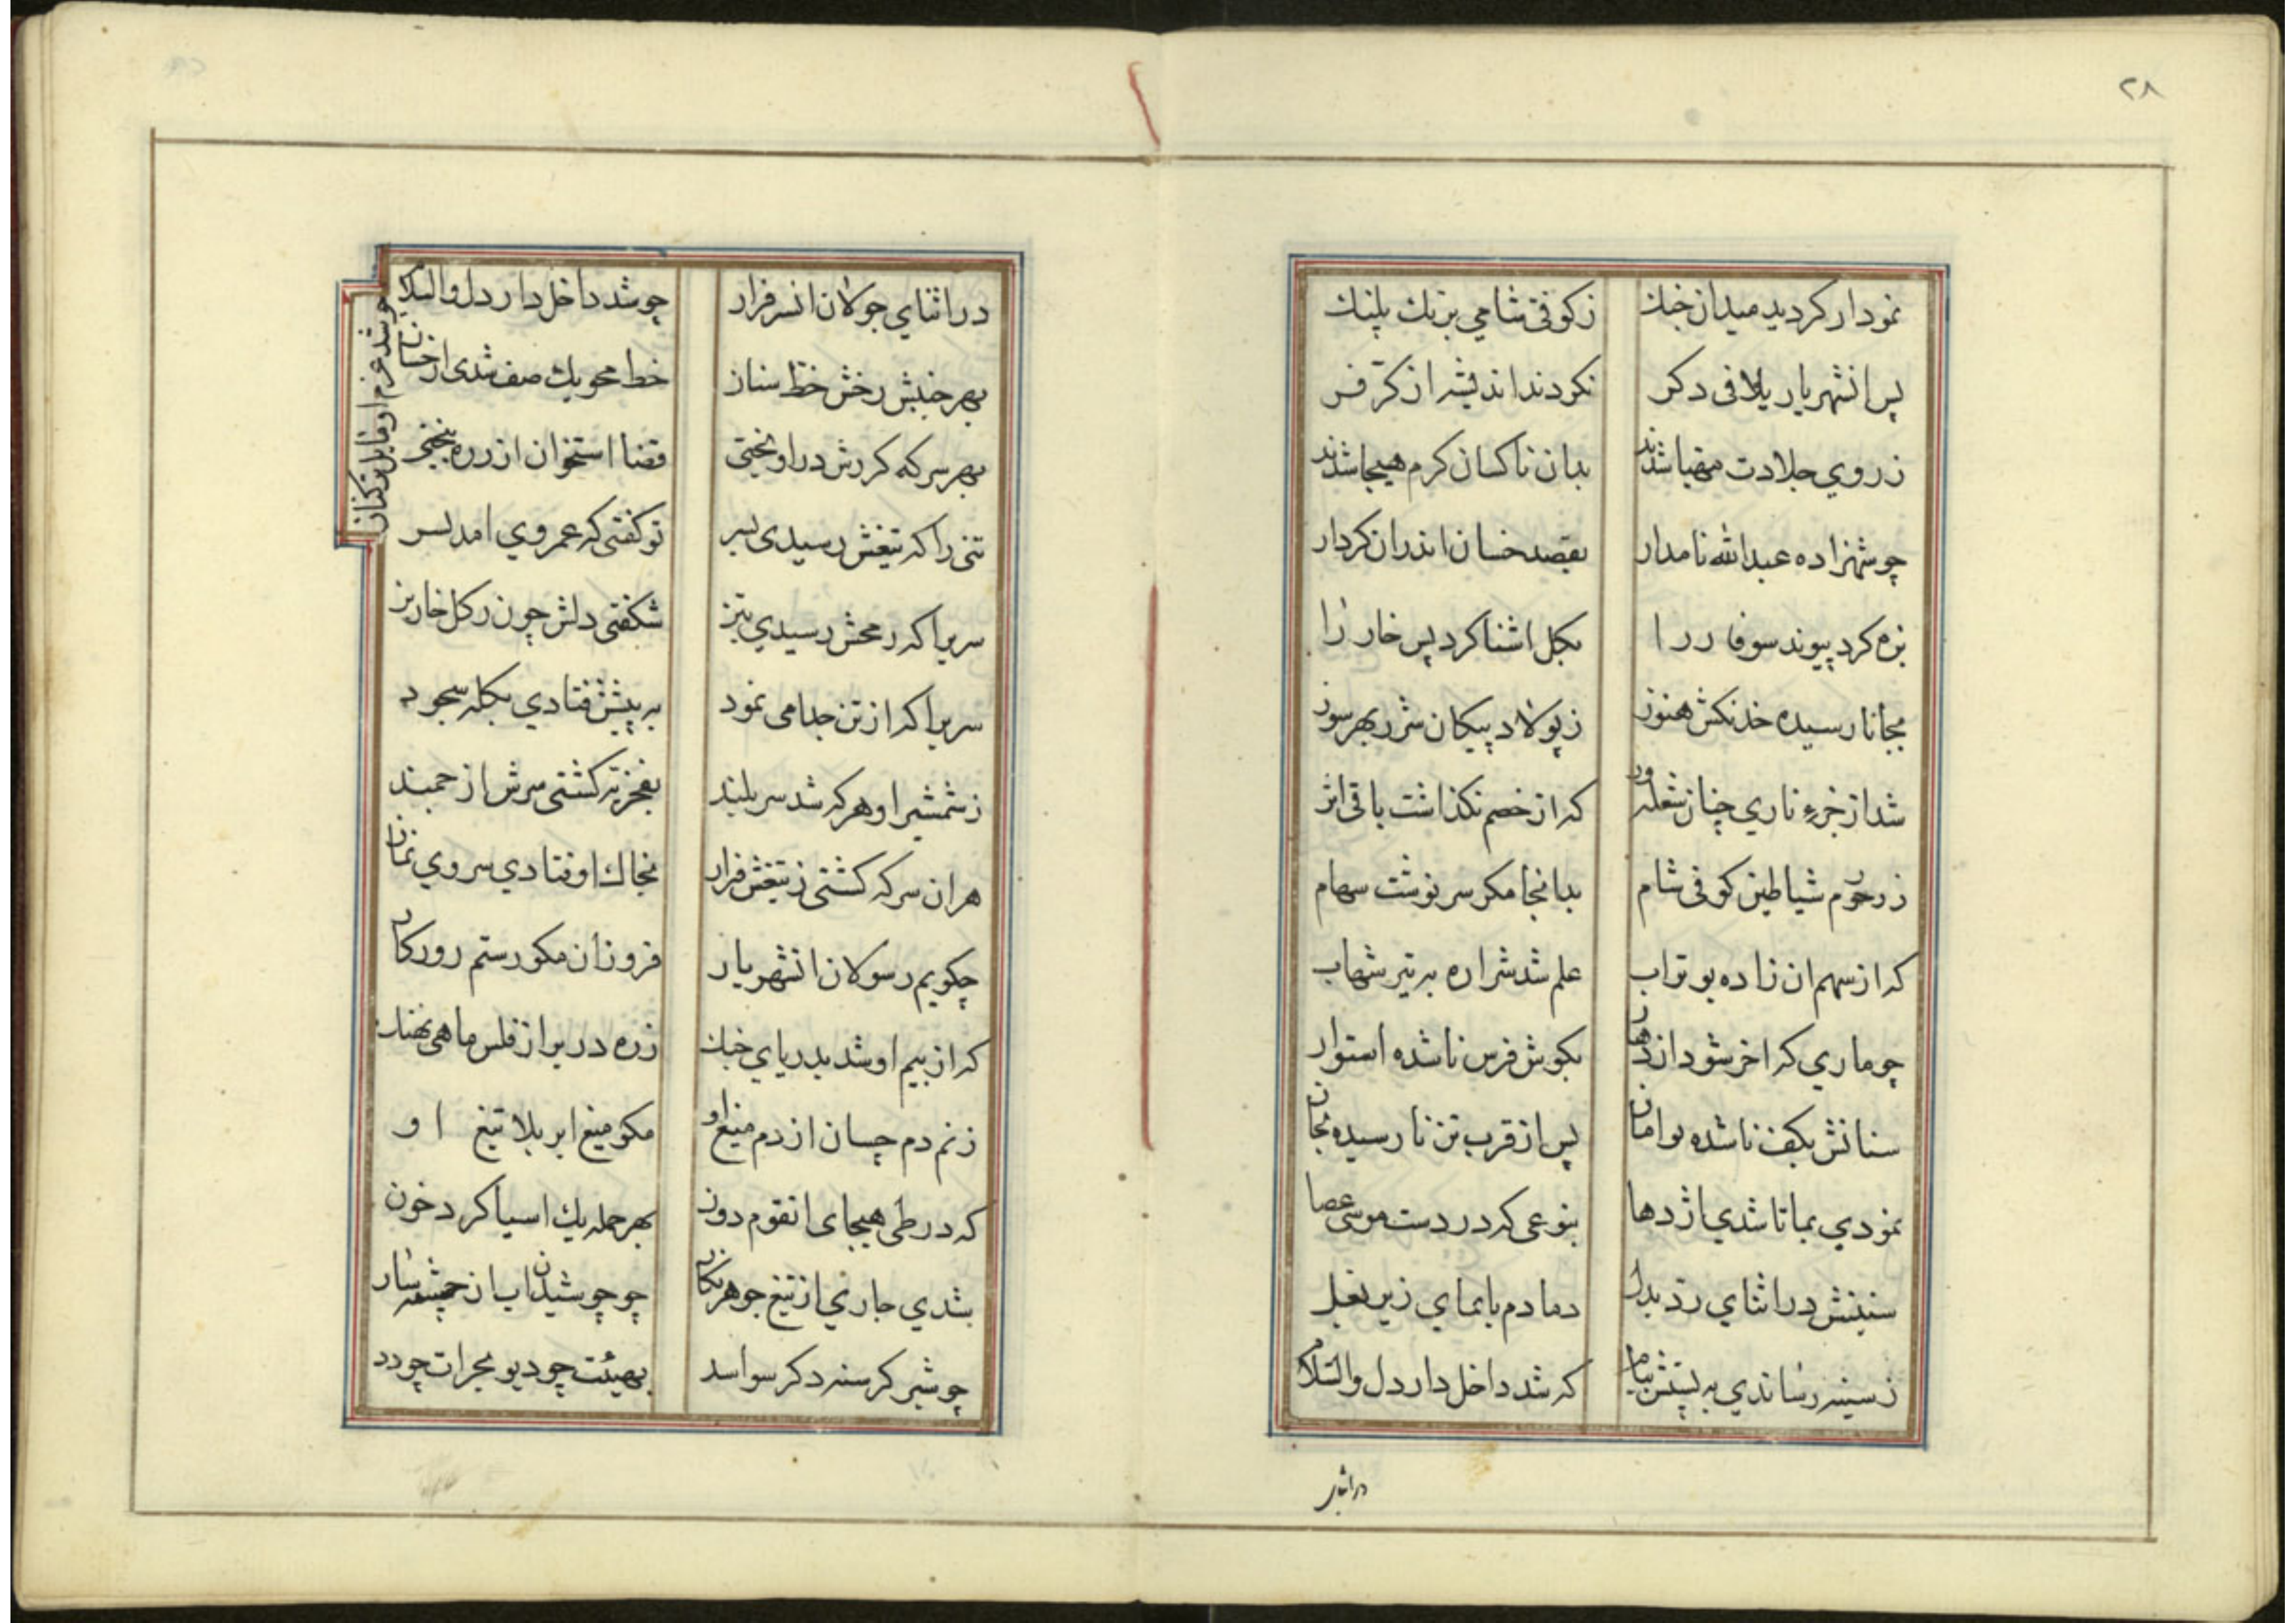 ٢٨
نمودار کردید میدان جنك
زکوفی شامی بزنك پلنك
پس انشهریار یلافی دکر
نکردند اندیشه از کرّ فر
زروي جلادت مهیا شدند
بدان ناکسان کرم هیجا شدند
چو شهزاده عبدالله نامدار
بقصد خسان اندران کردار
بزه کرد پیوند سوفاررا
بکل اشنا کرد پس خاررا
بجانا رسیده خدنکش هنوز
زپولاد پیکان شرر بهر سوز
شد از جزء ناري چنان شعله‌ور
که از خصم نکذاشت باقی اثر
زرجوم شیاطین کوفی شام
بدانجا مکر سرنوشت سهام
که از سهم ان زاده بوتراب
علم شد شراره به تیر شهاب
چو ماري که اخر شود اژدها
بکوش فرس ناشده استوار
سنانش بکف ناشده
پس از قرب تن نارسیده بجان
نمودي بماتا شدي اژدها
بنوعی که در دست موسی عصا
سنینش در اثناي ردّ بدل
دمادم بایمای زیر بغل
زسینه رساندي به پشتش پیام
که شد داخل دار دل والسّلام
در اثنای
در اثناي جولان انسرفراز
چو شد داخل دار دل والسلام
چو شد عزم او قابل ترکتاز
بهر جنبش رخش خط سنان
خط محو یك صف شدی از خسان
بهر سر که کرزش دراویختی
قضا استخوان از زره بیختی
تنی را که تیغش رسیدی بسر
تو کفتی که عمر وي امد بسر
سریرا که رمحش رسیدي بتیز
شکفتی دلش چون زکل خار بز
سریرا که از تن جدا می نمود
به پیشش فتادي بکله سجود
زشمشیر او هر که شد سربلند
بعجز برکشتی سرش از خمند
هران سر که کشتی زتیغش فرار
بخاك اوفتادي سر وي نماز
چکویم رسولان انشهریار
فروزان مکو رستم روزکار
که از بیم او شد بدریاي جنك
زره در بر از فلس ماهی نهنك
زنم دم چسان از دم میغ او
مکو میغ ابر بلا تیغ او
که در طی هیجای انقوم دون
بهر حمله یك اسیا کرد خون
شدي جاري از تیغ جوهر نکار
چو جوشیدن اب از چشمه‌سار
چو شیر کرسنه دکر سو اسد
بهیئت چو دیو بجرات چو دد